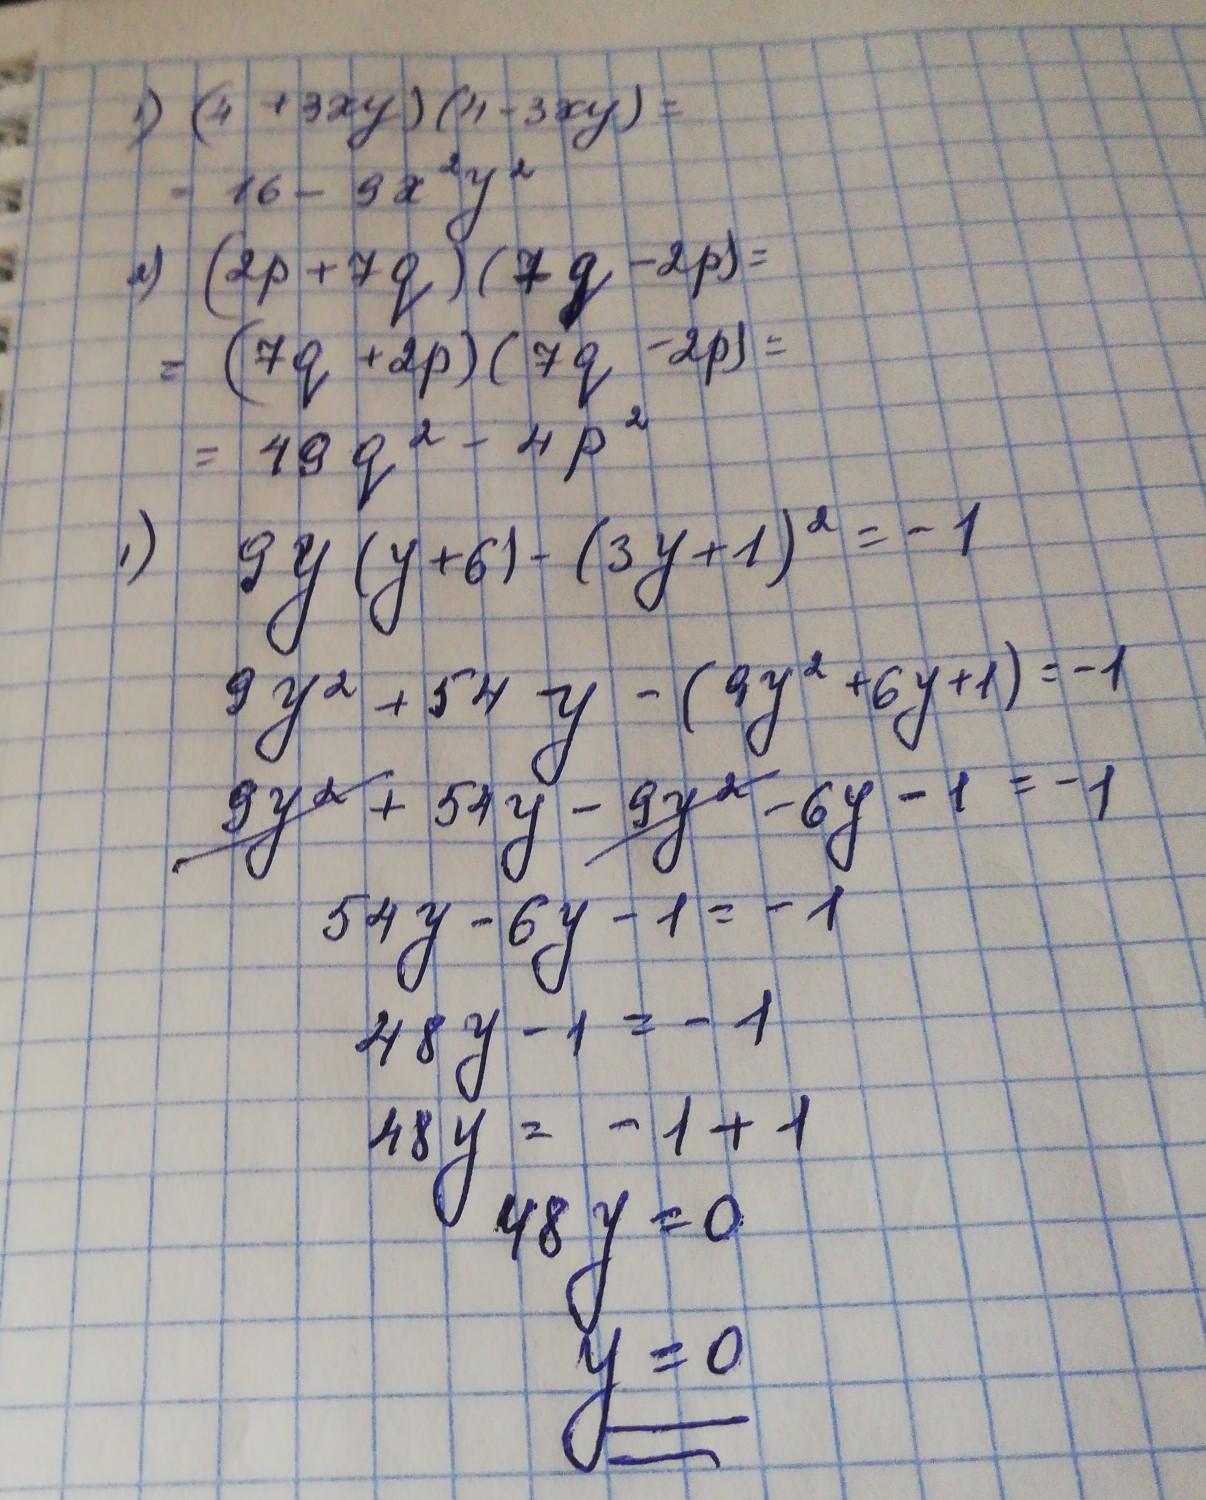 1) (4 + 3xy)(4 - 3xy) =
= 16 - 9x²y²
2) (2p + 7q)(7q - 2p) =
= (7q + 2p)(7q - 2p) =
= 49q² - 4p²
1) 9y(y+6) - (3y+1)² = -1
9y² + 54y - (9y² + 6y + 1) = -1
9y² + 54y - 9y² - 6y - 1 = -1
54y - 6y - 1 = -1
48y - 1 = -1
48y = -1 + 1
48y = 0
y = 0